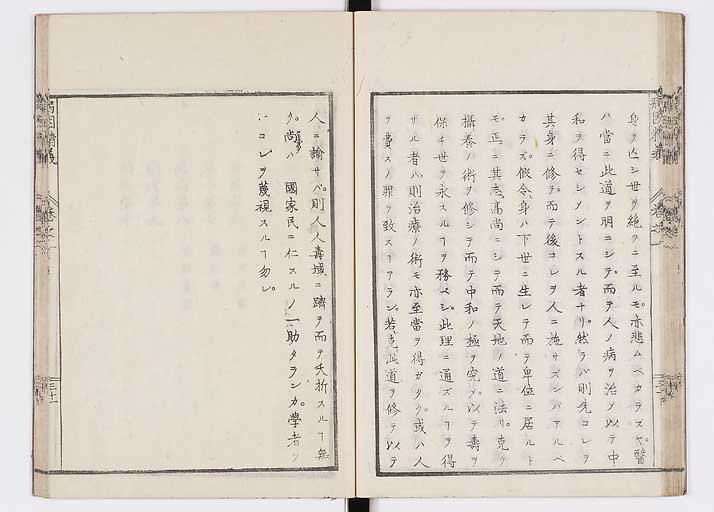 身ヲ亡シ世ヲ絶クニ至ルモ。亦悲ムベカラズヤ。醫
ハ當ニ此道ヲ明ニシテ。而テ人ノ病ヲ治メ以テ中
和ヲ得セシメントスル者ナリ。然ラバ則先コレヲ
其身ニ修テ。而テ後コレヲ人ニ施サズンバアルベ
カラズ。假令身ハ下世ニ生レテ而テ卑位ニ居ルト
モ。正ニ其志ヲ高尚ニシテ而テ天地ノ道ニ法リ。克ク
攝養ノ術ヲ修シテ而テ中和ノ極ヲ究メ。以テ壽ヲ
保チ世ヲ永スルヿヲ務ベシ。此理ニ通ズルヿヲ得
ザル者ハ。則治療ノ術モ亦至當ヲ得ガタク。或ハ人
ヲ費スノ罪ヲ致スヿアラン。若克此道ヲ修テ以テ
人ニ諭サバ。則人人壽域ニ躋ヲ而テ夭折スルヿ無
ク。尚ハ 國家民ニ仁スルノ一助タランカ。學者
コレヲ蔑視スルヿ勿レ。
病因精義
卷之一
三十一